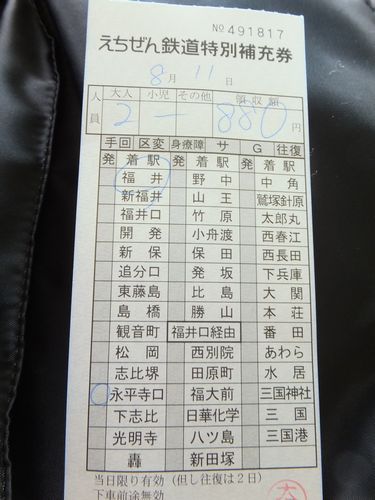 №491817
えちぜん鉄道特別補充券
8月11日
人員 大人 小児 その他 領収額
2 — 880円
手回 区変 身療障 サ G 往復
発 着駅 発 着駅 発 着駅
福井 野中 中角
新福井 山王 鷲塚針原
福井口 竹原 太郎丸
開発 小舟渡 西春江
新保 保田 西長田
追分口 発坂 下兵庫
東藤島 比島 大関
島橋 勝山 本荘
観音町 福井口経由 番田
松岡 西別院 あわら
志比堺 田原町 水居
永平寺口 福大前 三国神社
下志比 日華化学 三国
光明寺 八ツ島 三国港
轟 新田塚
当日限り有効（但し往復は2日）
下車前途無効